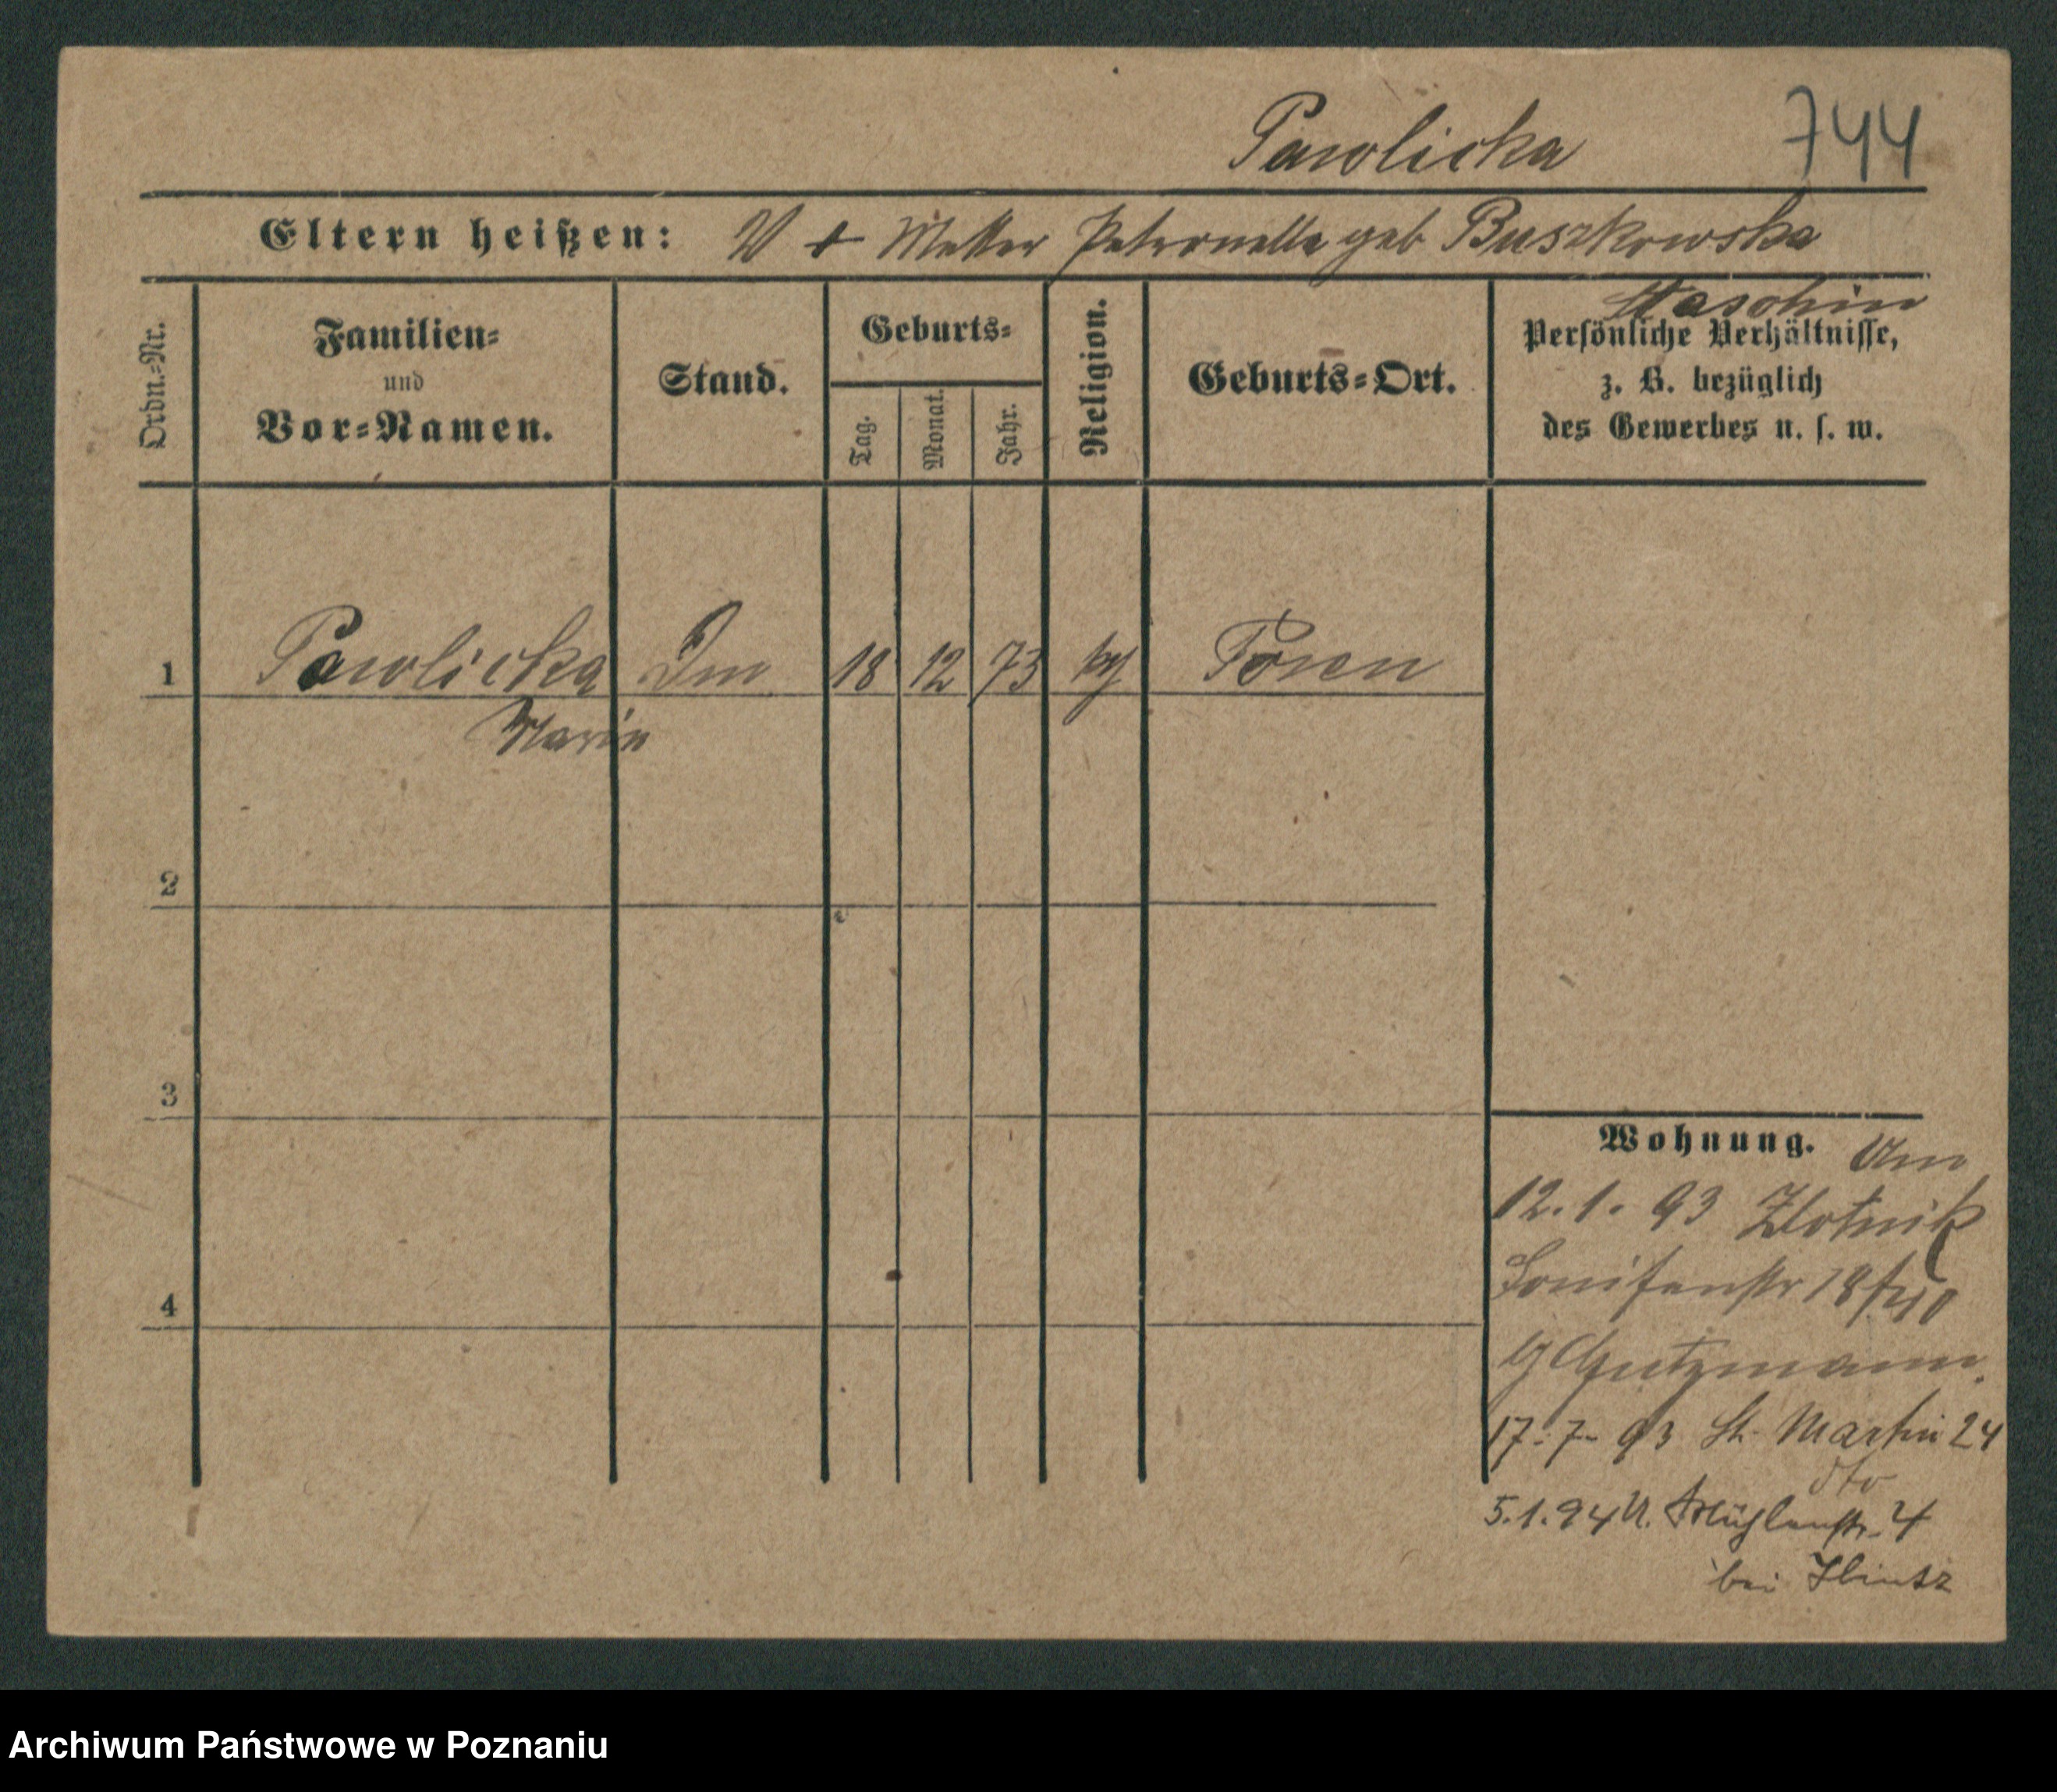 Pawlicka 744
Eltern heißen: V + Mutter Petronella geb Buszkowska
Staschin
Ordn.-Nr.
Familien-
und
Vor-Namen.
Stand.
Geburts-
Tag.
Monat.
Jahr.
Religion.
Geburts-Ort.
Persönliche Verhältnisse,
z. B. bezüglich
des Gewerbes u. s. w.
1 Pawlicka Dm 18 12 73 kg Posen
Marie
2
3
4
Wohnung. Um
12.1.93 Zlotnik
Louisenstr 18
Gutzmann.
17.7.93 St. Martin 24
dto
5.1.94 U. Mühlenstr. 4
bei
Archiwum Państwowe w Poznaniu